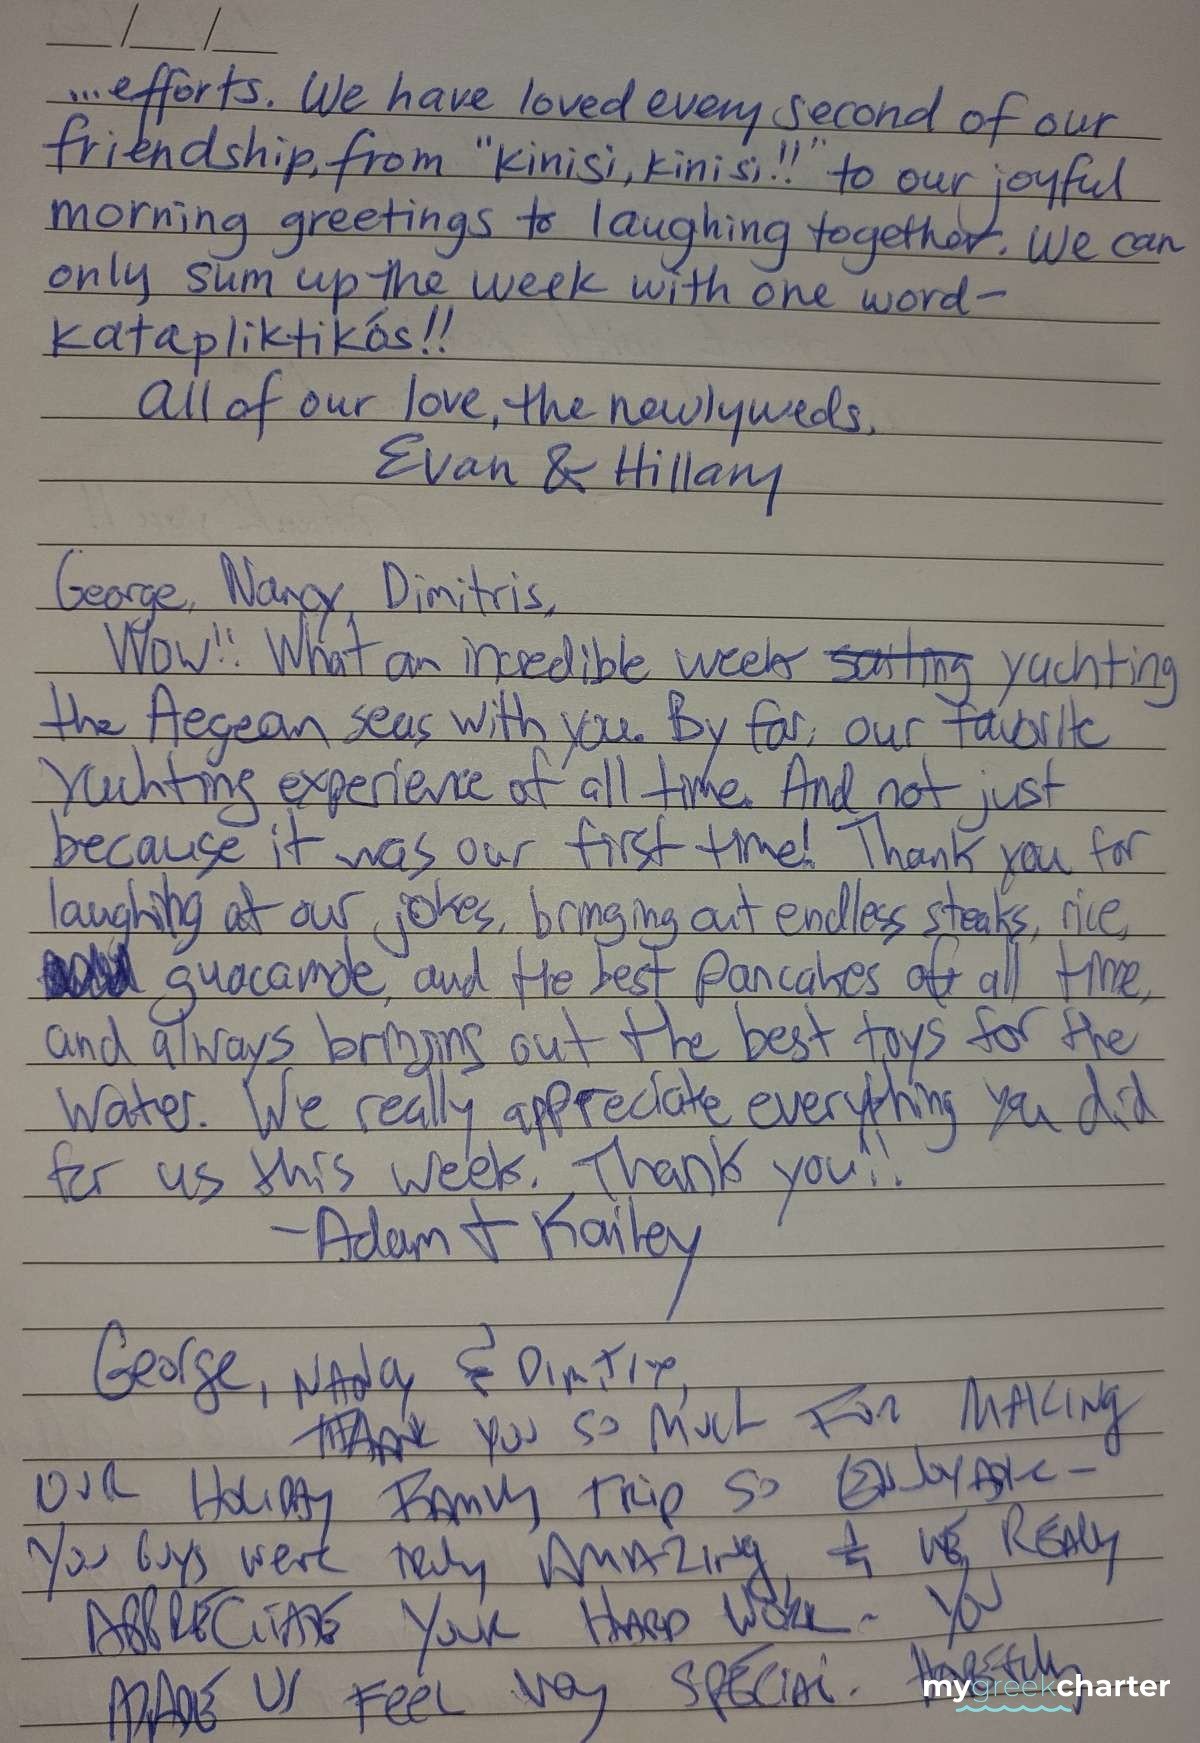 __/__/__
...efforts. We have loved every second of our
friendship, from "kinisi, kinisi!!" to our joyful
morning greetings to laughing together. We can
only sum up the week with one word-
katapliktikós!!
All of our love, the newlyweds,
Evan & Hillary
George, Nancy, Dimitris,
Wow!! What an incredible week yachting
the Aegean seas with you. By far, our favorite
yachting experience of all time. And not just
because it was our first time! Thank you for
laughing at our jokes, bringing out endless steaks, rice,
guacamole, and the best pancakes of all time,
and always bringing out the best toys for the
water. We really appreciate everything you did
for us this week. Thank you!!
-Adam + Kailey
George, Nancy &
Thank you so much for making
our Holiday Family Trip so
You guys were truly amazing, & we really
appreciate your hard work - you
made us feel very special. Hopefully
mygreekcharter